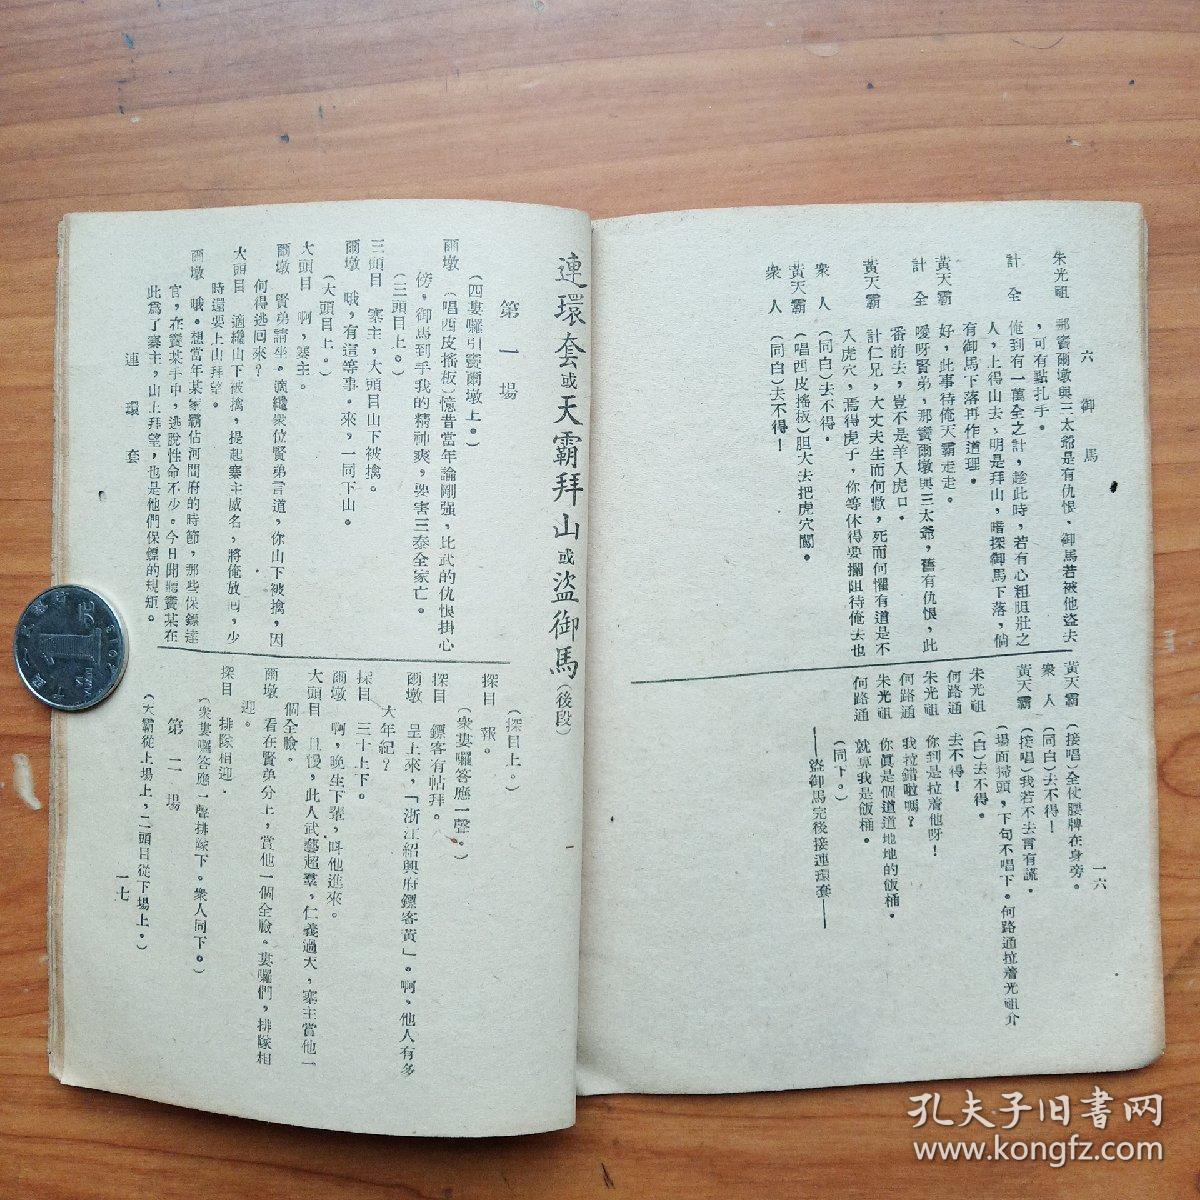 六　御　馬
一六
朱光祖　那竇爾墩與三太爺是有仇恨、御馬若被他盜去
，可有點扎手。
計　全　俺到有一萬全之計，趁此時，若有心粗胆壯之
人，上得山去，明是拜山，暗探御馬下落，倘
有御馬下落再作道理。
黃天霸　好，此事待俺天霸走走。
計　全　噯呀賢弟，那竇爾墩與三太爺，舊有仇恨，此
番前去，豈不是羊入虎口。
黃天霸　計仁兄，大丈夫生而何歡，死而何懼有道是不
入虎穴，焉得虎子，你等休得要攔阻待俺去也
衆　人　（同白）去不得。
黃天霸　（唱西皮搖板）胆大去把虎穴闖。
衆　人　（同白）去不得！
黃天霸　（接唱）全仗腰牌在身旁。
衆　人　（同白）去不得！
黃天霸　（接唱）我若不去言有謊。
（場面掃頭，下句不唱下。何路通拉着光祖介
朱光祖　（白）去不得。
何路通　去不得！
朱光祖　你到是拉着他呀！
何路通　我拉錯啦嗎？
朱光祖　你眞是個道道地地的飯桶。
何路通　就算我是飯桶。
（同下。）
——盜御馬完後接連環套——
連環套或天霸拜山或盜御馬（後段）
第　一　場
（四婁囉引竇爾墩上。）
爾墩　（唱西皮搖板）憶昔當年論剛强，比武的仇恨掛心
傍，御馬到手我的精神爽，要害三泰全家亡。
（三頭目上。）
三頭目　寨主，大頭目山下被擒。
爾墩　哦，有這等事。來，一同下山。
（大頭目上。）
大頭目　啊，寨主。
爾墩　賢弟請坐。適纔衆位賢弟言道，你山下被擒，因
何得逃回來？
大頭目　適纔山下被擒，提起寨主威名，將俺放回，少
時還要上山拜望。
爾墩　哦。想當年某家霸佔河間府的時節，那些保鏢達
官，在竇某手中，逃脫性命不少。今日聞聽竇某在
此爲了寨主，山上拜望，也是他們保鏢的規矩。
（探目上。）
探目　報。
（衆婁囉答應一聲。）
探目　鏢客有帖拜。
爾墩　呈上來，「浙江紹興府鏢客黃」。啊、他人有多
大年紀？
探目　三十上下。
爾墩　啊，晚生下輩，叫他進來。
大頭目　且慢，此人武藝超羣，仁義過大，寨主賞他一
個全臉。
爾墩　看在賢弟分上，賞他一個全臉。婁囉們，排隊相
迎。
探目　排隊相迎。
（衆婁囉答應一聲排隊下。衆人同下。）
第　二　場
（天霸從上場上，二頭目從下場上。）
連　環　套
一七
孔夫子旧書网
www.kongfz.com